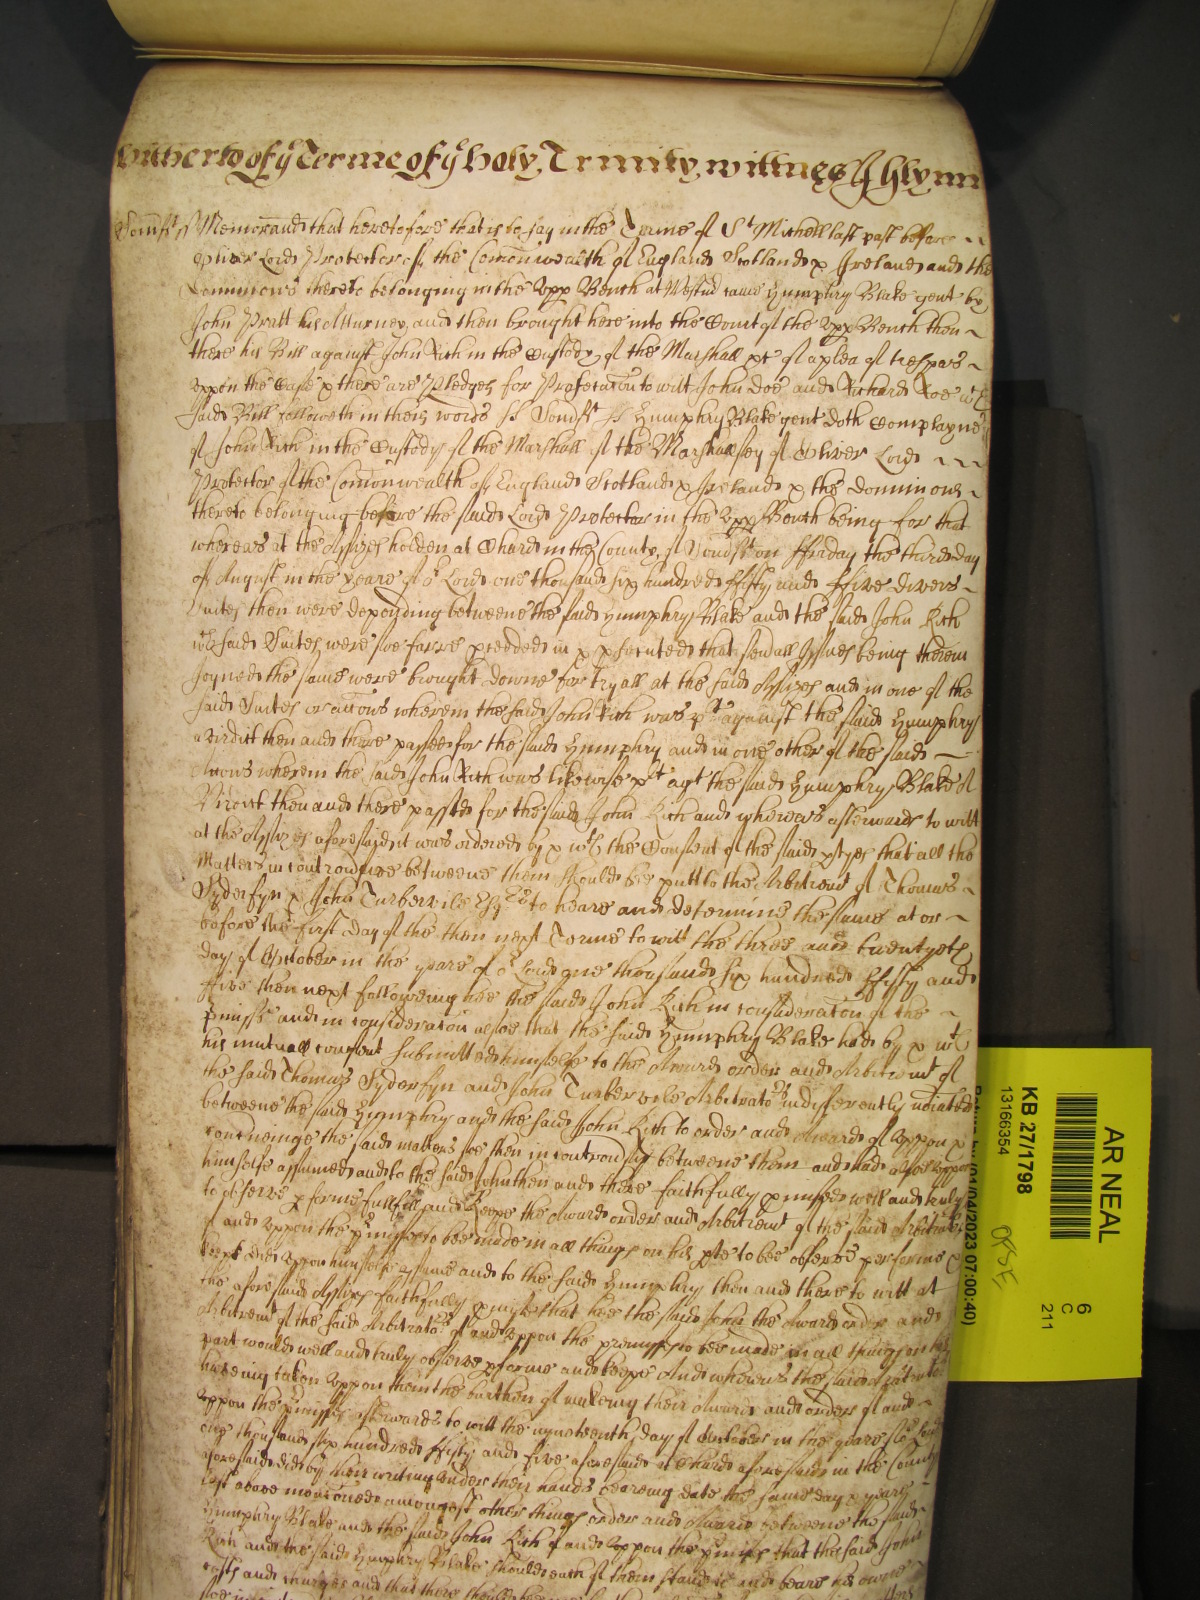 hitherto of ye Terme of ye holy Trinity wittnes J Glynn
Somst ss Memorand that heretofore that is to say in the Terme of St Michell last past before
Oliver Lord Protector of the Comonwealth of England Scotland & Ireland and the
Dominions thereto belonging in the Upp Bench at Westmr came Humphry Blake gent by
John Pratt his Atturney and then brought here into the Court of the Upp Bench then
there his Bill against John Rich in the Custody of the Marshall &c of a plea of trespas
uppon the Case & there are Pledges for Prosecution to witt John Doe and Richard Roe wch
said Bill followeth in theis words ss Somst ss Humphry Blake gent doth Complayne
of John Rich in the Custody of the Marshall of the Marshallsey of Oliver Lord
Protector of the Comonwealth of England Scotland & Ireland & the dominions
thereto belonging before the said Lord Protector in the Upp Bench being for that
whereas at the Assizes holden at Chard in the County of Somst on ffriday the third day
of August in the yeare of or Lord one thousand six hundred fifty and ffive divers
Suites then were depending betweene the said Humphry Blake and the said John Rich
wch said Suites were soe farre pceeded in & psecuted that sevall Issues being therein
Joyned the same were brought downe for tryall at the said Assizes and in one of the
said Suites or accons wherein the said John Rich was plt against the said Humphry
a virdict then and there passed for the said Humphry and in one other of the said
Accons wherein the said John Rich was likewise plt agt the said Humphry Blake A
Virdict then and there passed for the said John Rich and whereas afterwards to witt
at the Assizes aforesaid it was ordered by & wth the Consent of the said ptyes that all the
Matters in controversie betweene them should bee putt to the Arbitremt of Thomas
Syderfyn & John Turbervile Esqrs to heare and determine the same at or
before the first day of the then next Terme to witt the three and twentyeth
day of October in the yeare of or Lord one thousand six hundred ffifty and
ffive then next following hee the said John Rich in consideracon of the
pmisses and in consideracon alsoe that the said Humphry Blake had by & wth
his mutuall consent submitted himselfe to the Award order and Arbitremt of
the said Thomas Syderfyn and John Turbervile Arbitrators indifferently
betweene the said Humphry and the said John Rich to order and award of uppon &
concerninge the said matters soe then in controversie betweene them and had alsoe uppon
himselfe assumed and to the said John then and there faithfully pmised well and truly
to observe pforme fullfill and keepe the Award order and Arbitremt of the said Arbitrators
of and uppon the pmisses to bee made in all things on his pte to bee observed performed &
kept did uppon himselfe assume and to the said Humphry then and there to witt at
the aforesaid Assizes faithfully pmise that hee the said John the Award order and
Arbitremt of the said Arbitrators of and uppon the premisses to bee made in all things on his
part would well and truly observe pforme and keepe And whereas the said Arbitrators
haveing taken uppon them the burthen of makeing their Award and order of and
uppon the pmisses afterwards to witt the nyneteenth day of October in the yeare of or Lord
one thousand six hundred ffifty and five aforesaid at Chard aforesaid in the County
aforesaid did by their writing under their hands beareing date the same day & yeare
last above menconed amongest other things order and Award betweene the said
Humphry Blake and the said John Rich of and uppon the pmisses that the said John
Rich and the said Humphry Blake should each of them stand to and beare his owne
costs and charges and that there should
AR NEAL
KB 27/1798
13166354
6
C
211
(01/04/2023 07:00:40)